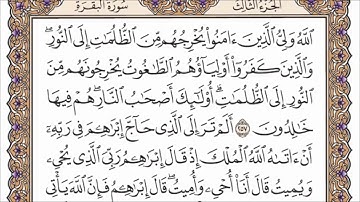 الجزء الثالث سورة البقرة
ٱللَّهُ وَلِيُّ ٱلَّذِينَ ءَامَنُوا۟ يُخْرِجُهُم مِّنَ ٱلظُّلُمَٰتِ إِلَى ٱلنُّورِۖ
وَٱلَّذِينَ كَفَرُوٓا۟ أَوْلِيَآؤُهُمُ ٱلطَّٰغُوتُ يُخْرِجُونَهُم مِّنَ
ٱلنُّورِ إِلَى ٱلظُّلُمَٰتِۗ أُو۟لَٰٓئِكَ أَصْحَٰبُ ٱلنَّارِۖ هُمْ فِيهَا
خَٰلِدُونَ ٢٥٧ أَلَمْ تَرَ إِلَى ٱلَّذِى حَآجَّ إِبْرَٰهِۦمَ فِى رَبِّهِۦٓ
أَنْ ءَاتَىٰهُ ٱللَّهُ ٱلْمُلْكَ إِذْ قَالَ إِبْرَٰهِۦمُ رَبِّىَ ٱلَّذِى يُحْىِۦ
وَيُمِيتُ قَالَ أَنَا۠ أُحْىِۦ وَأُمِيتُۖ قَالَ إِبْرَٰهِۦمُ فَإِنَّ ٱللَّهَ يَأْتِى